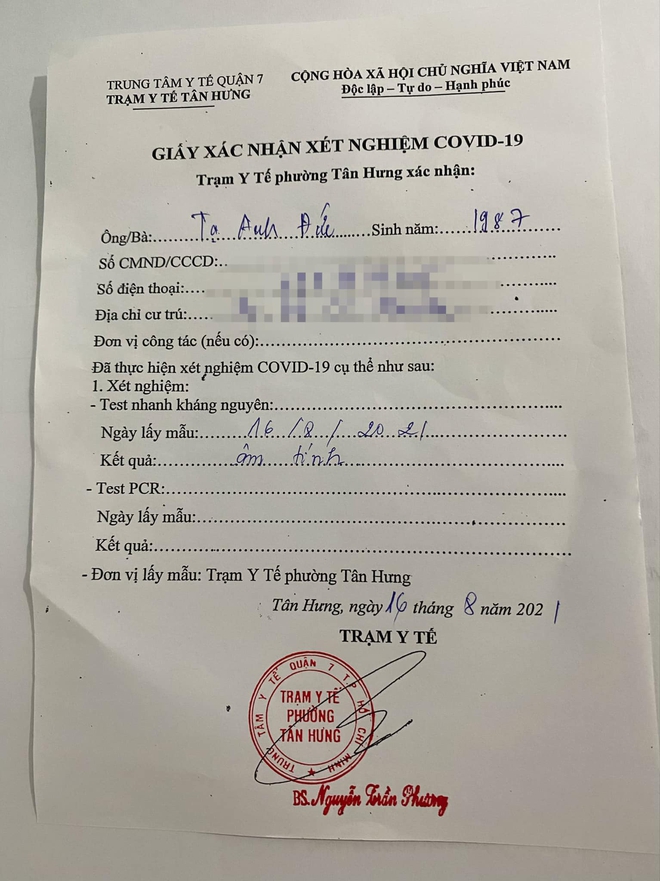 TRUNG TÂM Y TẾ QUẬN 7
TRẠM Y TẾ TÂN HƯNG
CỘNG HÒA XÃ HỘI CHỦ NGHĨA VIỆT NAM
Độc lập – Tự do – Hạnh phúc
GIẤY XÁC NHẬN XÉT NGHIỆM COVID-19
Trạm Y Tế phường Tân Hưng xác nhận:
Ông/Bà: Tạ Anh Đức Sinh năm: 1987
Số CMND/CCCD:
Số điện thoại:
Địa chỉ cư trú:
Đơn vị công tác (nếu có):
Đã thực hiện xét nghiệm COVID-19 cụ thể như sau:
1. Xét nghiệm:
- Test nhanh kháng nguyên:
Ngày lấy mẫu: 16/8/2021
Kết quả: âm tính
- Test PCR:
Ngày lấy mẫu:
Kết quả:
- Đơn vị lấy mẫu: Trạm Y Tế phường Tân Hưng
Tân Hưng, ngày 16 tháng 8 năm 2021
TRẠM Y TẾ
TRUNG TÂM Y TẾ QUẬN 7 T.P HỒ CHÍ MINH
TRẠM Y TẾ
PHƯỜNG
TÂN HƯNG
BS. Nguyễn Trần Phương